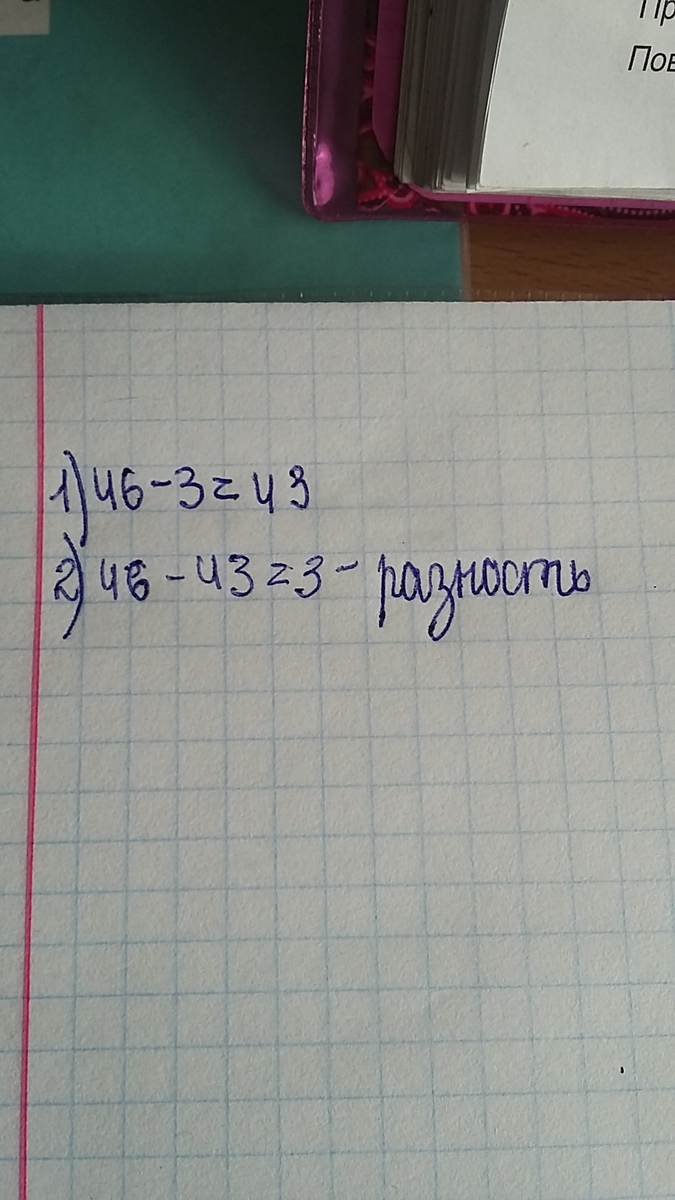 Пр
Пов
1) 46-3=43
2) 46-43=3- разность